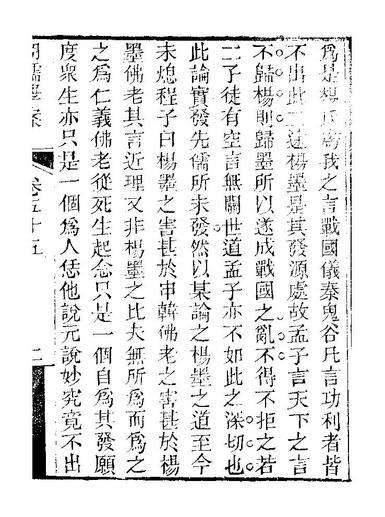 爲是楊氏爲我之言戰國儀秦鬼谷凡言功利者皆
不出此二途楊墨是其發源處故孟子言天下之言
不歸楊則歸墨所以遂成戰國之亂不得不拒之若
二子徒有空言無關世道孟子亦不如此之深切也
此論實發先儒所未發然以某論之楊墨之道至今
未熄程子曰楊墨之害甚於申韓佛老之害甚於楊
墨佛老其言近理又非楊墨之比夫無所爲而爲之
之爲仁義佛老從死生起念只是一個自爲其發願
度衆生亦只是一個爲人恁他說元說妙究竟不出
卷五十五
二